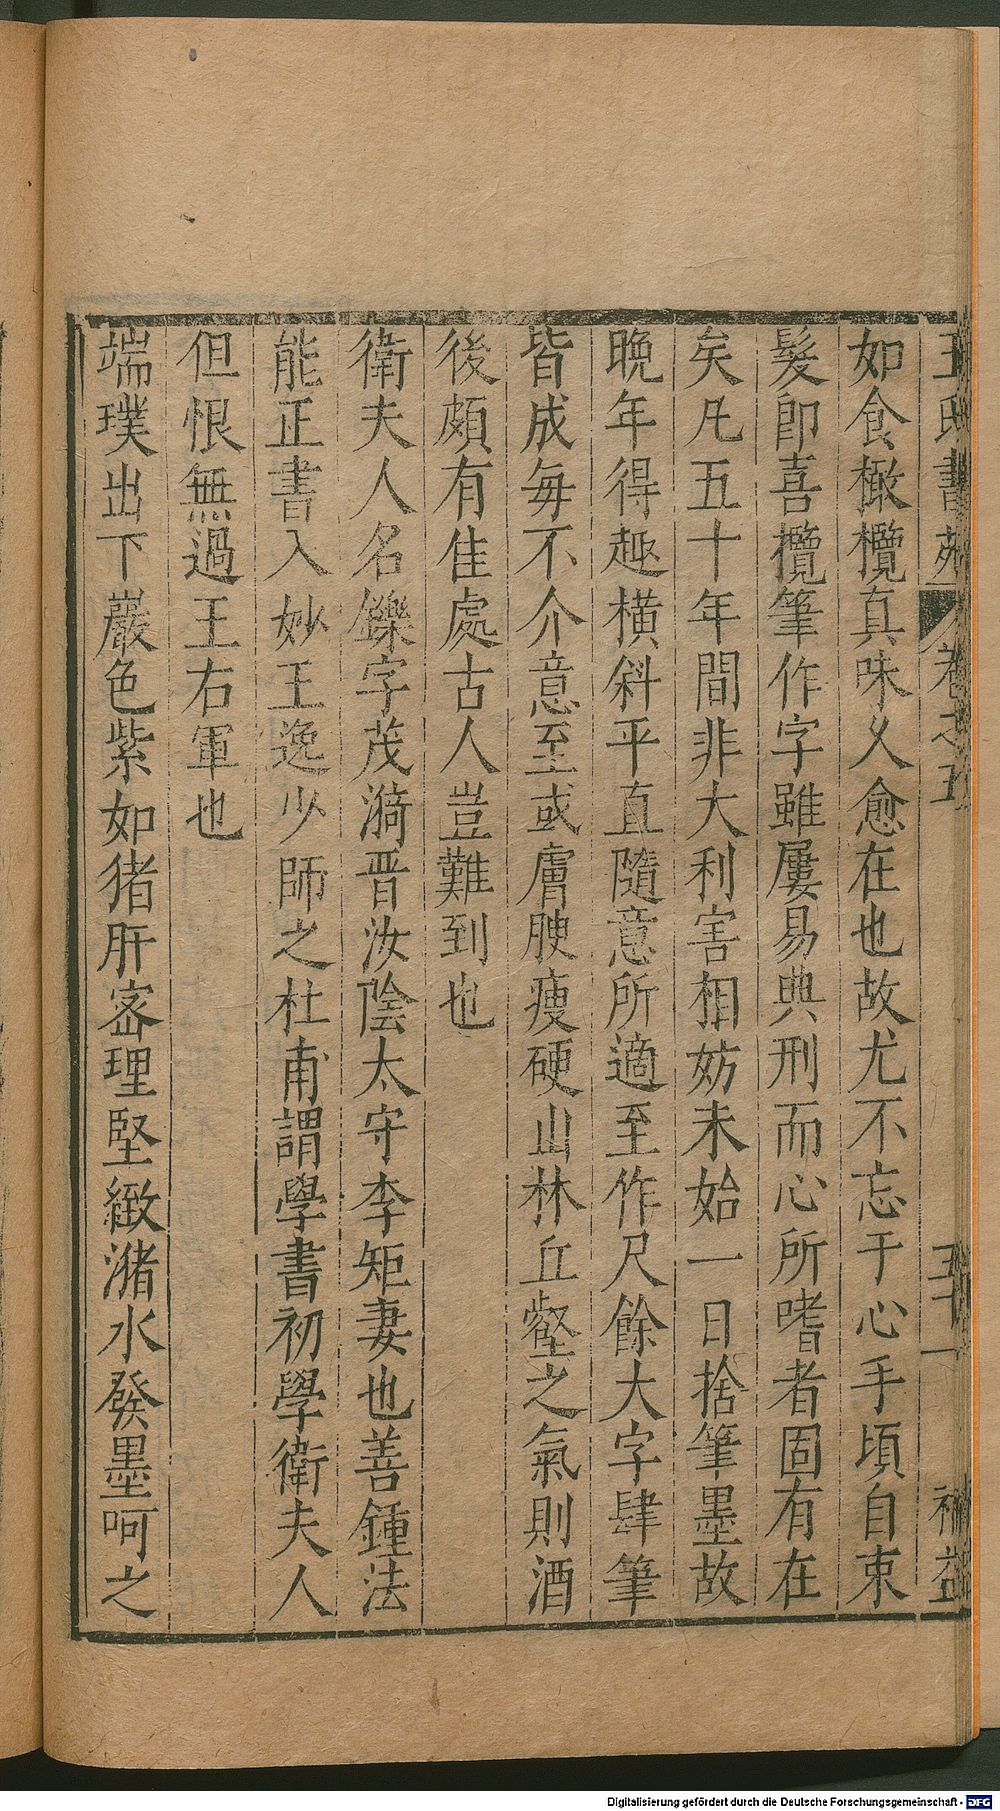 王氏書苑 卷之五 五十一 補益
如食橄欖真味乆愈在也故尤不忘于心手頃自束
髮卽喜攬筆作字雖屢易典刑而心所嗜者固有在
矣凡五十年間非大利害相妨未始一日捨筆墨故
晩年得趣橫斜平直隨意所適至作尺餘大字肆筆
皆成每不介意至或膚腴瘦硬山林丘壑之氣則酒
後頗有佳處古人豈難到也
衛夫人名鑠字茂漪晋汝陰太守李矩妻也善鍾法
能正書入妙王逸少師之杜甫謂學書初學衛夫人
但恨無過王右軍也
端璞出下巖色紫如猪肝宻理堅緻瀦水發墨呵之
Digitalisierung gefördert durch die Deutsche Forschungsgemeinschaft - DFG